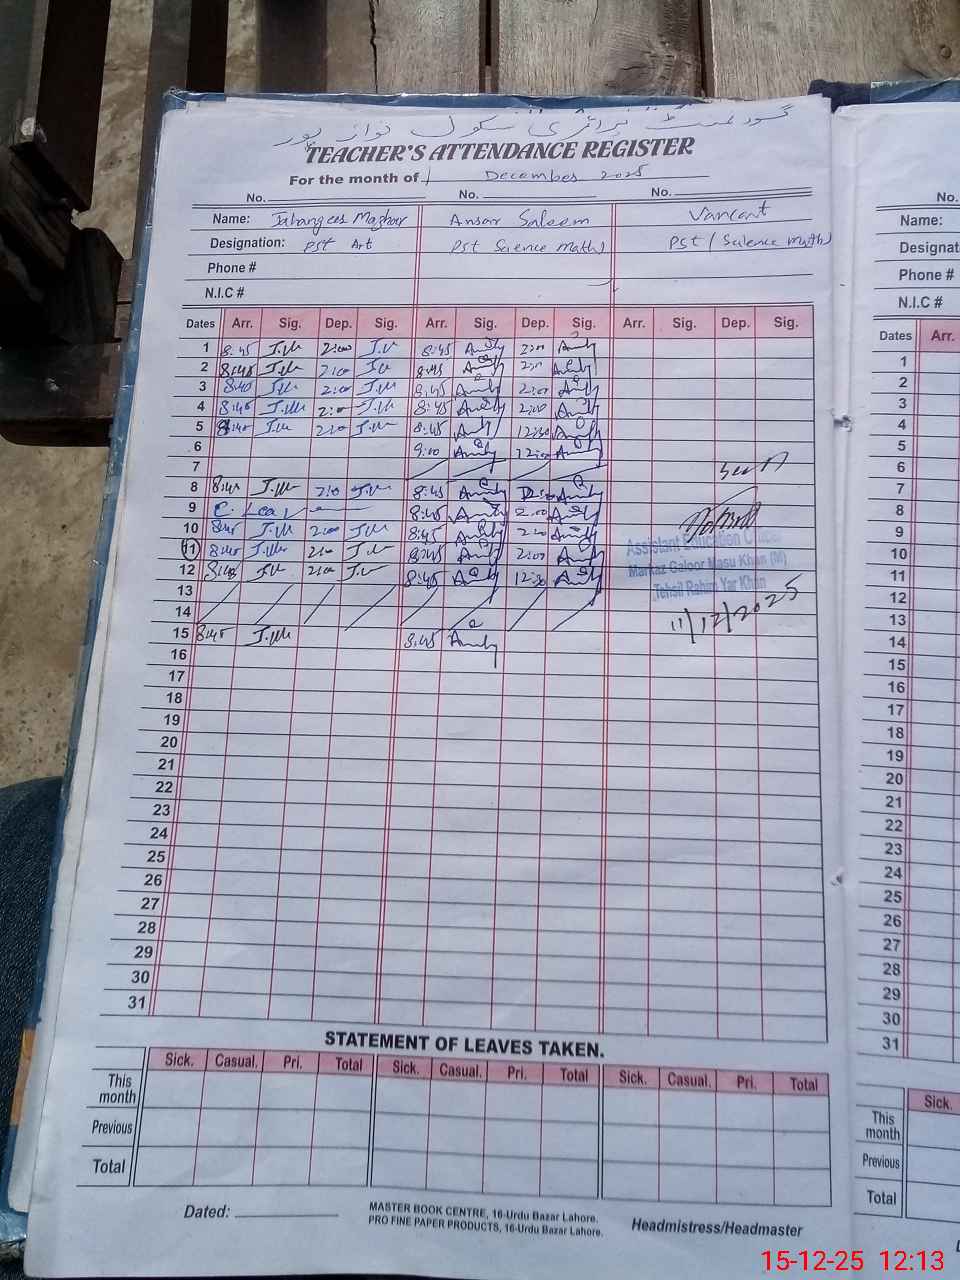 گورنمنٹ پرائمری سکول نواز پور
TEACHER'S ATTENDANCE REGISTER
For the month of December 2025
No. No. No.
Name: Jahangeer Mazhar Ansar Saleem Vancant
Designation: PST Art PST Science math) PST (Science math)
Phone #
N.I.C #
Dates Arr. Sig. Dep. Sig. Arr. Sig. Dep. Sig. Arr. Sig. Dep. Sig.
1 8:45 2:00 8:45 2:00
2 8:45 2:00 8:45 2:00
3 8:40 2:00 8:45 2:00
4 8:45 2:00 8:45 2:00
5 8:40 8:45 12:30
6 9:00 12:00
7
8 8:45 2:00 8:45
9 C. Leav 8:45 2:00
10 8:45 2:00 8:45 2:00
11 8:45 2:00 8:45 2:00
12 8:45 2:00 8:45 12:30
13
14
15 8:45 8:45
16
17
18
19
20
21
22
23
24
25
26
27
28
29
30
31
Seen
Assistant Education Officer
Markaz Galoor Masu Khan (M)
Tehsil Rahim Yar Khan
11/12/2025
STATEMENT OF LEAVES TAKEN.
Sick. Casual. Pri. Total Sick. Casual. Pri. Total Sick. Casual. Pri. Total
This month
Previous
Total
Dated:
MASTER BOOK CENTRE, 16-Urdu Bazar Lahore.
PRO FINE PAPER PRODUCTS, 16-Urdu Bazar Lahore.
Headmistress/Headmaster
No.
Name:
Designat
Phone #
N.I.C #
Dates Arr.
1
2
3
4
5
6
7
8
9
10
11
12
13
14
15
16
17
18
19
20
21
22
23
24
25
26
27
28
29
30
31
Sick.
This month
Previous
Total
15-12-25 12:13